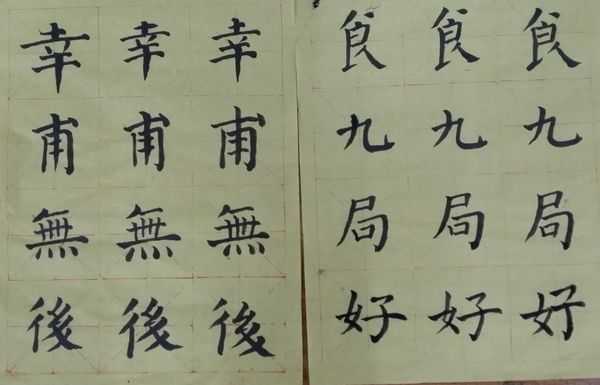 幸幸幸
甫甫甫
無無無
後後後
九九九
局局局
好好好